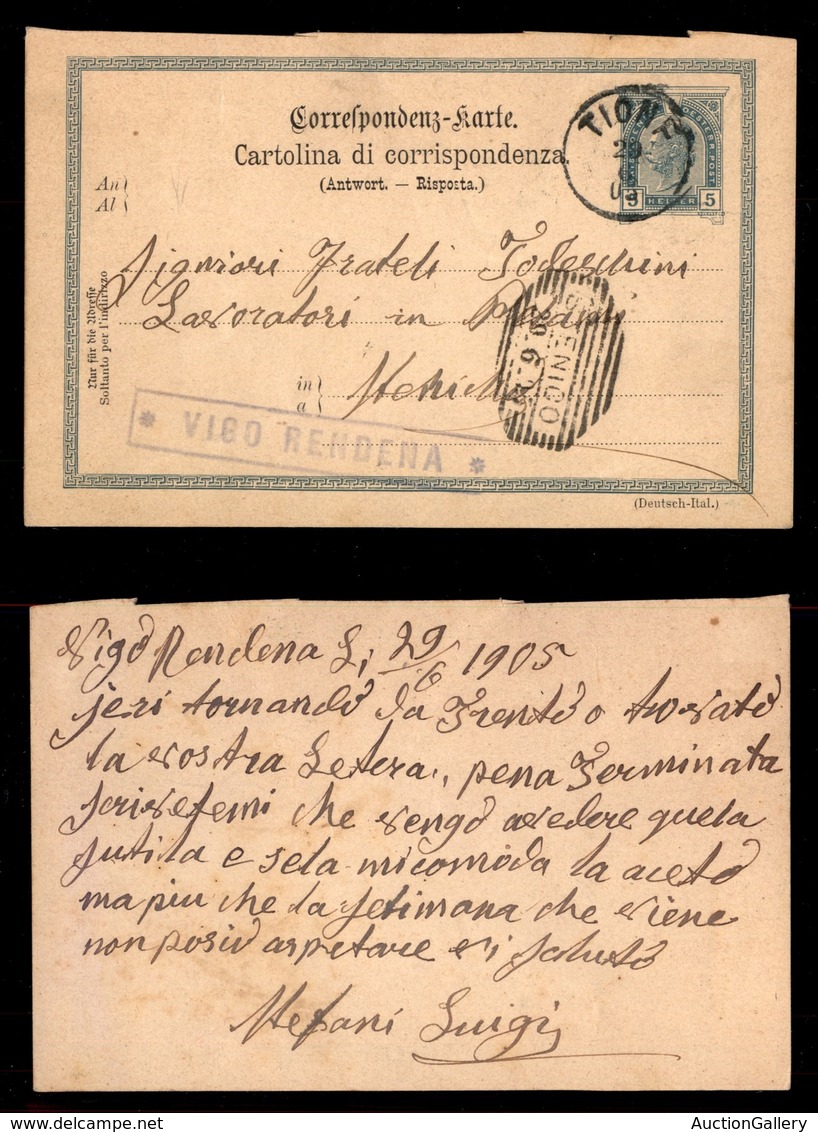 Correspondenz-Karte.
Cartolina di corrispondenza.
(Antwort. — Risposta.)
An
Al
TIONE
29
5 HELLER 5
Nur für die Adresse
Soltanto per l'indirizzo
Signiori Frateli Todeschini
Lavoratori in
in
a
29 6
CONDINO
* VIGO RENDENA *
(Deutsch-Ital.)
Vigo Rendena Li 29/6 1905
jeri tornando da Trento o trovato
la vostra Letera, pena Terminata
scrivetemi che vengo avedere quela
sutila e sela micomoda la aceto
ma piu che la setimana che viene
non posio aspetare vi saluto
Stefani Luigi
AuctionGallery